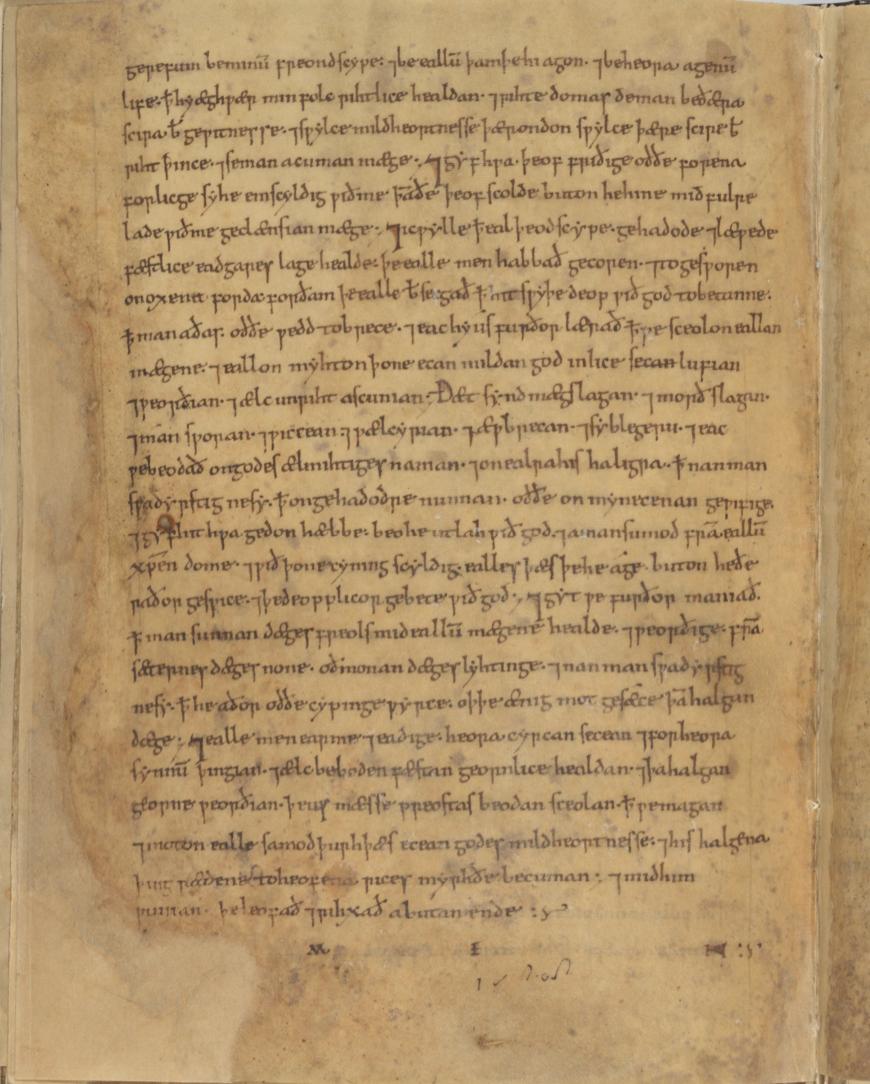 gerefum beminū freondscype· ⁊be eallū þam þe hi agon· ⁊be heora agenū
life· ꝥ hy æghƿær min folc rihtlice healdan· ⁊rihte domas deman beðæra
scira b̄ geƿitnesse· ⁊sƿylce mildheortnesse þær on don sƿylce þære scire b̄
riht þince· ⁊se man acuman mæge· ⁊gyf hƿa þeof friðige oððe forena
forlicge syhe emscyldig ƿið me þāðe þeof scolde buton he hine mid fulre
lade ƿið me geclænsian mæge· ⁊ic ƿylle ꝥ eal þeodscype· gehadode ⁊læƿede
fæstlice eadgares lage healde· þe ealle men habbað gecoren· ⁊to gesƿoren
on oxena forda· forðam þe ealle b̄ secgað ꝥ hit sƿyþe deop ƿið god to betanne·
ꝥ man aðas· oððe ƿedd tobrece· ⁊eac hy us furðor lærað ꝥ ƿe sceolon eallan
mægene· ⁊eallon myhton þone ecan mildan god inlice secan lufian
⁊ƿeorðian· ⁊ælc unriht ascunian· Ðæt synd mægslagan· ⁊morðslagan·
⁊mansƿoran· ⁊ƿiccean· ⁊ƿælcyrian· ⁊æƿbrecan· ⁊syblegeru· ⁊eac
ƿe beodað on godes ælmihtiges naman· ⁊on ealra his haligra· ꝥ nan man
sƿa dyrstig ne sy· ꝥ on gehadodre nunnan· oððe on mynecenan geƿifige·
⁊gyf hit hƿa gedon hæbbe· beo he utlah ƿið god· ⁊amansumod frā eallū
xp̄endome· ⁊ƿið þone cyning scyldig ealles þæs þe he age· buton he ðe
raðor gesƿice· ⁊þe deopplicor gebete ƿið god· ⁊gyt ƿe furðor maniað·
ꝥ man sunnan dæges freols mid eallū mægene healde· ⁊ƿeorðige· frā
sæternes dæges none· oð monan dæges lyhtinge· ⁊nan man sƿa dyrstig
ne sy· ꝥ he aðor oððe cypinge ƿyrce· oþþe ænig mot gesæce þā halgan
dæge· ⁊ealle men earme ⁊eadige· heora cyrcan secean ⁊for heora
synnū þingian· ⁊ælc beboden fæstan geornlice healdan· ⁊þa halgan
georne ƿeorðian· þe us mæssepreostas beodan sceolan· ꝥ ƿe magan
⁊moton ealle samod þurh þæs ecean godes mildheortnesse· ⁊his halgena
þingrædene to heofena rices myrhðe becuman· ⁊mid him
ƿunian· þe leofað ⁊rixað a butan ende